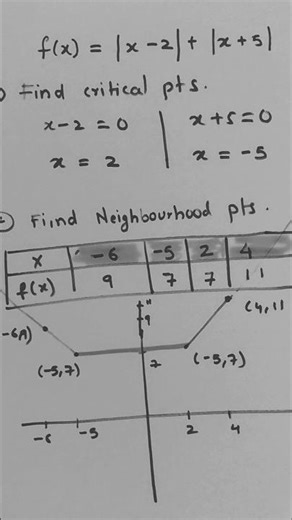 f(x) = |x-2| + |x+5|
Find critical pts.
x-2 = 0 | x+5 = 0
x = 2 | x = -5
Fiind Neighbourhood pts.
x -6 -5 2 4
f(x) 9 7 7 11
11
9
(4,11
-6,9)
(-5,7) 7 (-5,7)
-6 -5 2 4